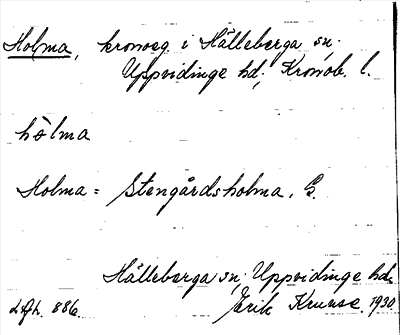 Holma, kronoeg i Hälleberga sn.
Uppvidinge hd, Kronob. l.
hòlma
Holma = Stengårdsholma, G.
Hälleberga sn, Uppvidinge hd.
Lfh. 886. Erik Kruuse. 1930